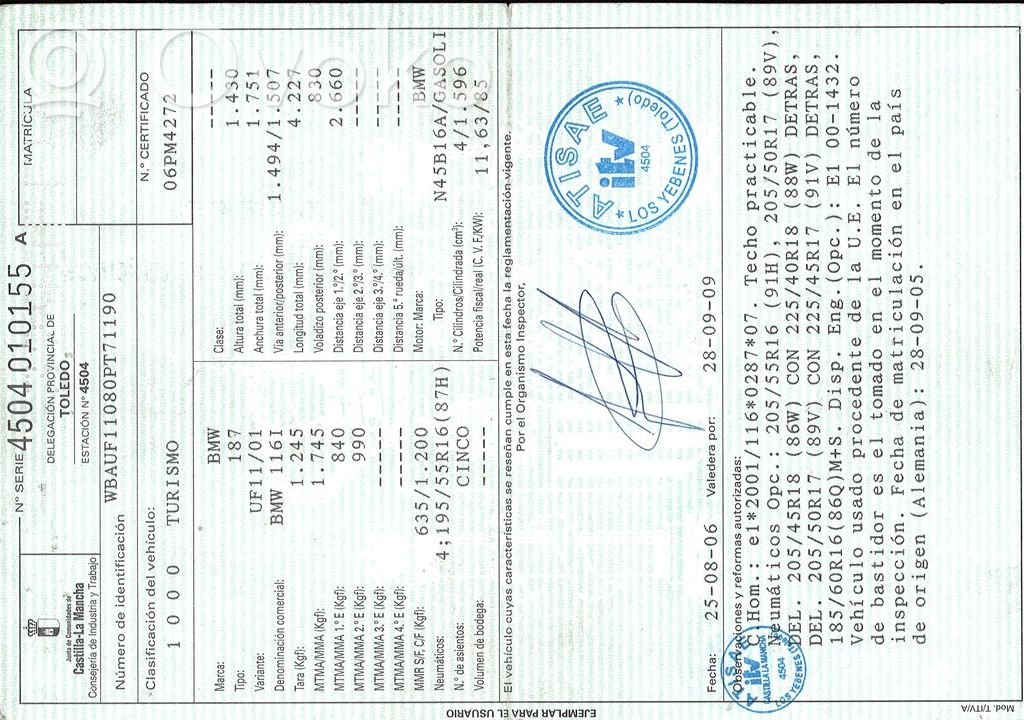 Nº SERIE 4504 010155 A
MATRÍCULA
Junta de Comunidades de
Castilla-La Mancha
Consejería de Industria y Trabajo
DELEGACIÓN PROVINCIAL DE
TOLEDO
ESTACIÓN Nº 4504
N.º CERTIFICADO
06PM4272
Número de identificación WBAUF11080PT71190
Clasificación del vehículo:
1 0 0 0 TURISMO
Marca: BMW
Tipo: 187
Variante: UF11/01
Denominación comercial: BMW 116I
Tara (Kgf): 1.245
MTMA/MMA (Kgf): 1.745
MTMA/MMA 1.º E (Kgf): 840
MTMA/MMA 2.º E (Kgf): 990
MTMA/MMA 3.º E (Kgf): -----
MTMA/MMA 4.º E (Kgf): -----
MMR S/F, C/F (Kgf): 635/1.200
Neumáticos: 4;195/55R16(87H)
N.º de asientos: CINCO
Volumen de bodega: -----
Clase: -----
Altura total (mm): 1.430
Anchura total (mm): 1.751
Vía anterior/posterior (mm): 1.494/1.507
Longitud total (mm): 4.227
Voladizo posterior (mm): 830
Distancia eje 1.º/2.º (mm): 2.660
Distancia eje 2.º/3.º (mm): -----
Distancia eje 3.º/4.º (mm): -----
Distancia 5.ª rueda/últ. (mm): -----
Motor: Marca: BMW
Tipo: N45B16A/GASOLI
N.º Cilindros/Cilindrada (cm³): 4/1.596
Potencia fiscal/real (C. V. F./KW): 11,63/85
El vehículo cuyas características se reseñan cumple en esta fecha la reglamentación vigente.
Por el Organismo Inspector,
ATISAE
itv
4504
LOS YEBENES (Toledo)
Fecha: 25-08-06 Valedera por: 28-09-09
Observaciones y reformas autorizadas:
C.Hom.: e1*2001/116*0287*07. Techo practicable.
Neumáticos Opc.: 205/55R16 (91H), 205/50R17 (89V),
DEL. 205/45R18 (86W) CON 225/40R18 (88W) DETRAS,
DEL. 205/50R17 (89V) CON 225/45R17 (91V) DETRAS,
185/60R16(86Q)M+S. Disp. Eng.(Opc.): E1 00-1432.
Vehículo usado procedente de la U.E. El número
de bastidor es el tomado en el momento de la
inspección. Fecha de matriculación en el país
de origen (Alemania): 28-09-05.
ATISAE
itv
CASTILLA LA MANCHA
4504
LOS YEBENES
EJEMPLAR PARA EL USUARIO
Mod. T/ITV/A
Ovoko